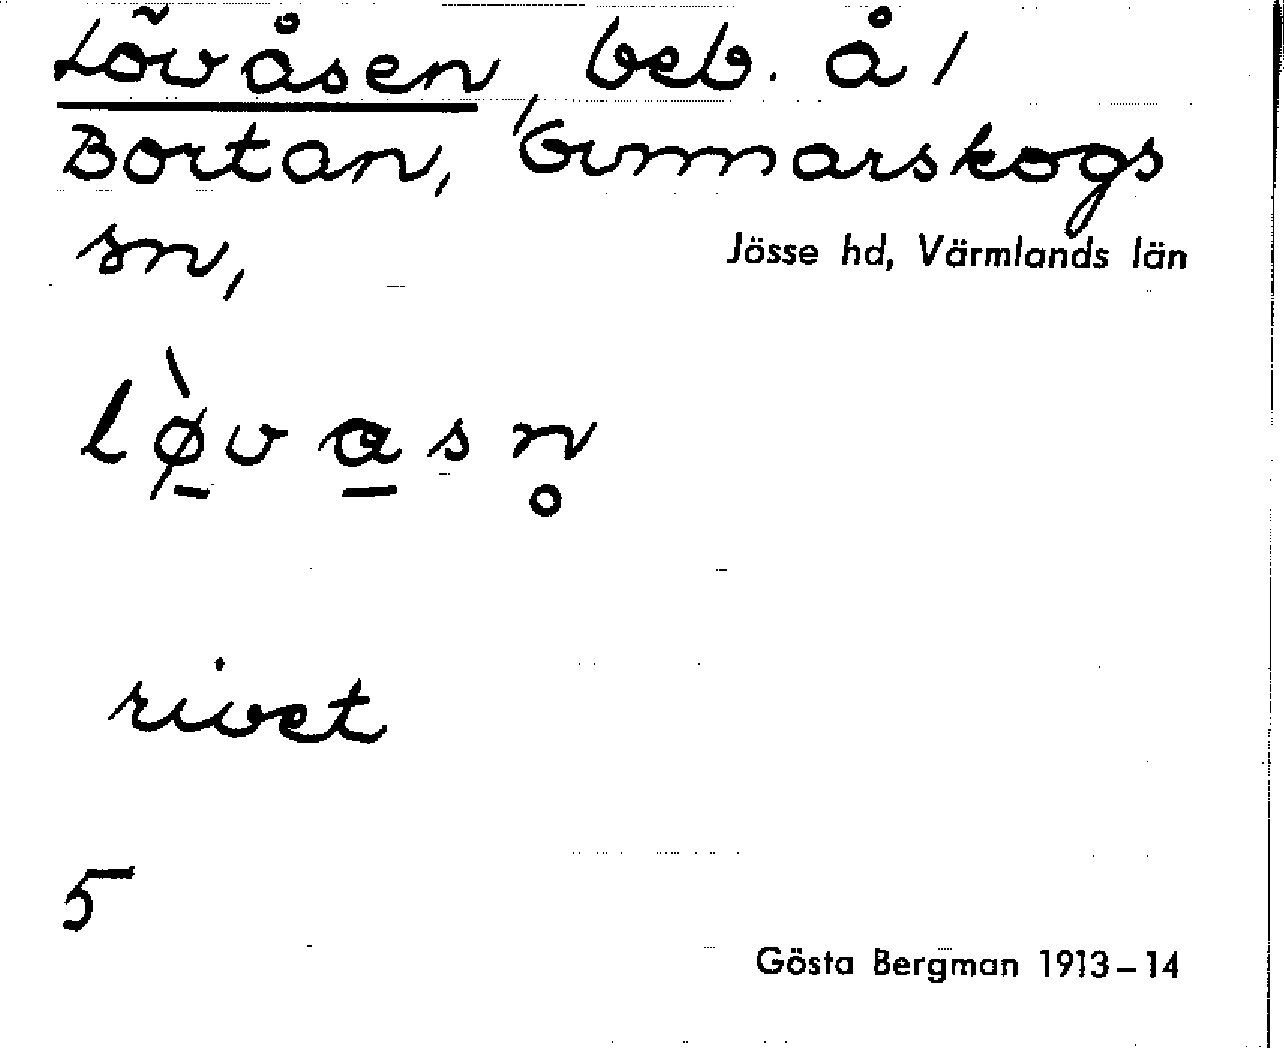 Lövåsen, beb. å 1
Bortan, Gunnarskogs
sn, Jösse hd, Värmlands län
lø̀vasn̥
rivet
5
Gösta Bergman 1913–14